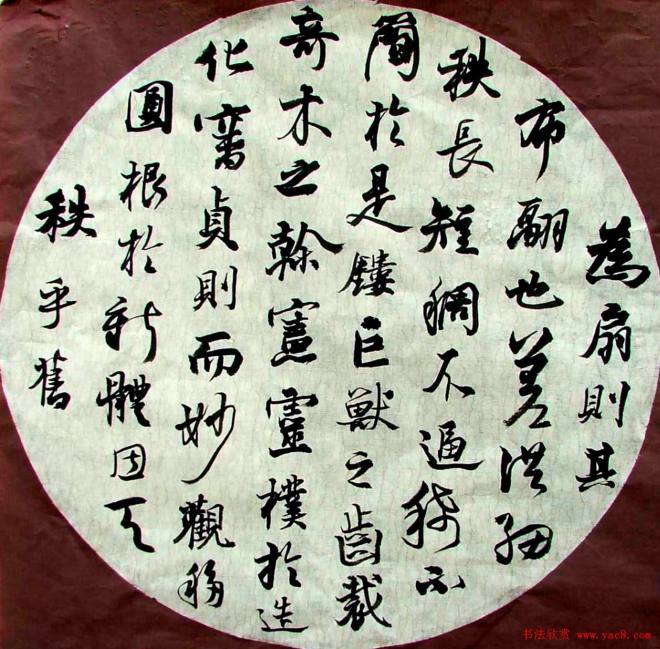 為扇則其
布翮也差洪細
秩長短稠不逼稀不
簡於是鏤巨獸之齒裁
奇木之幹憲靈樸於造
化審貞則而妙觀移
圓根於新體因天
秩乎舊
书法欣赏 www.yac8.com